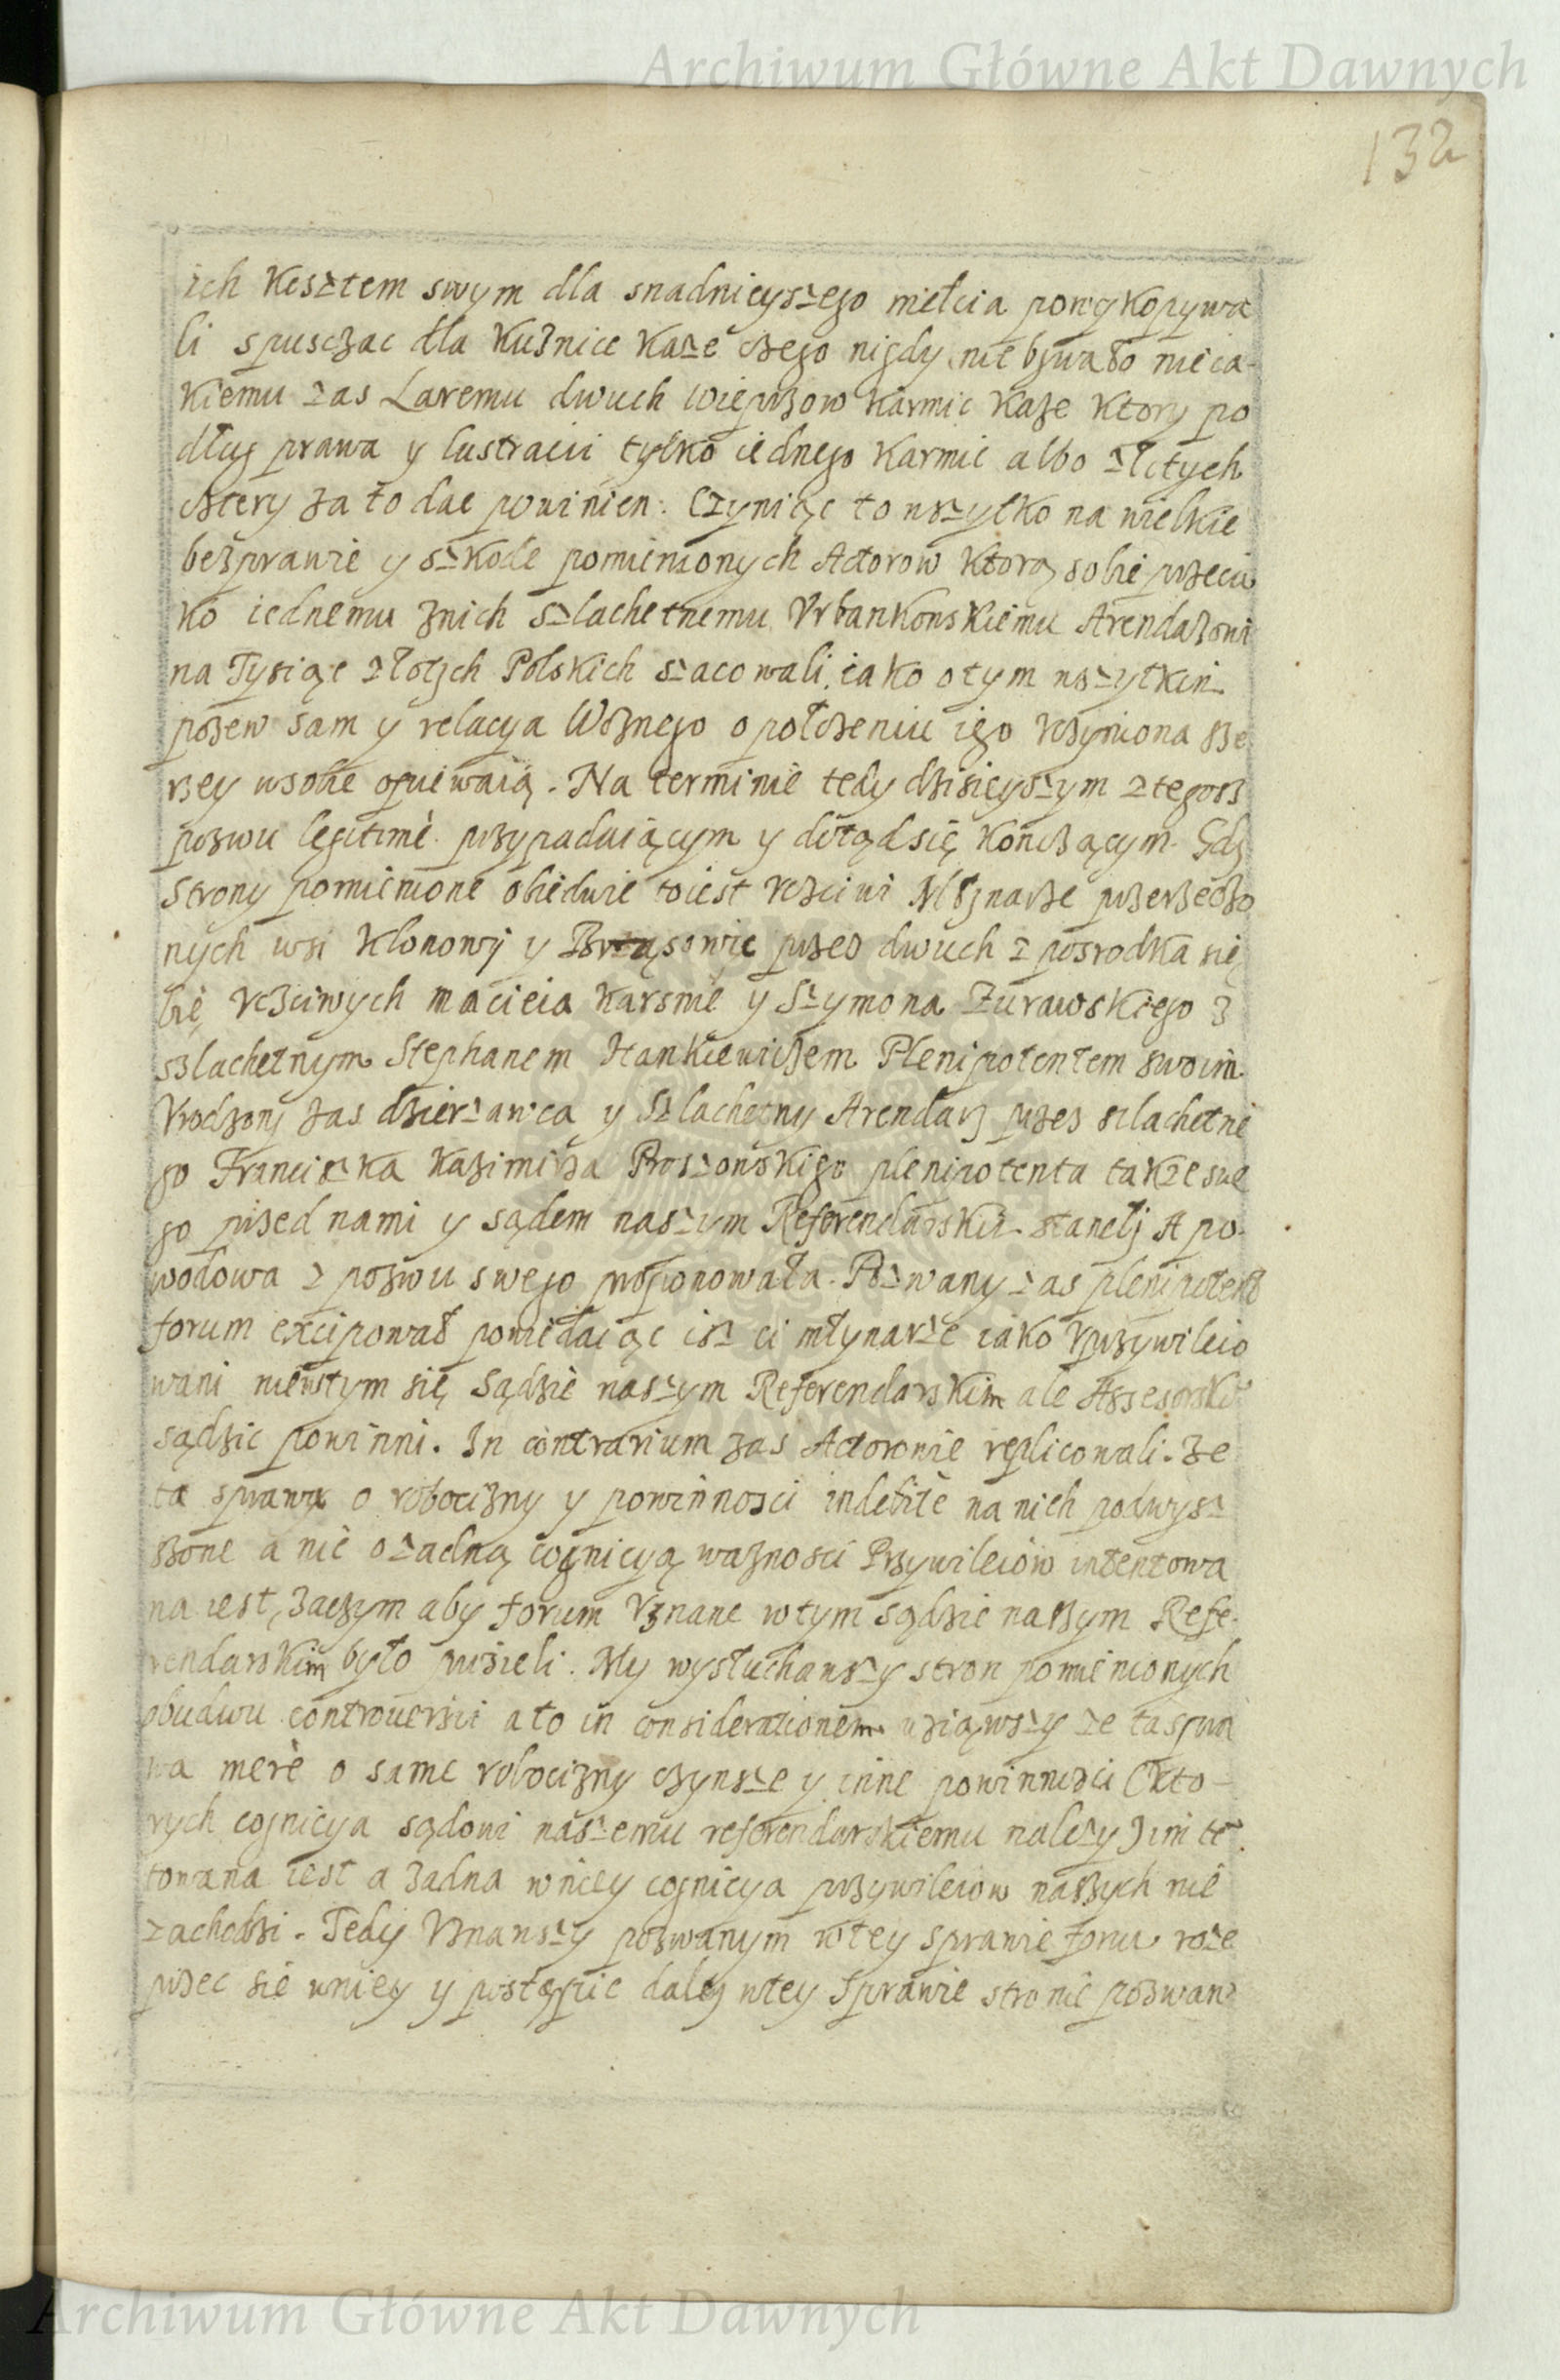 Archiwum Główne Akt Dawnych
132
ich Kosztem swym dla snadnieyszego mełcia powykopywa
li spusczac dla Kuznice Kaze czego nigdy nie bywało nieia-
kiemu zas Laremu dwuch wieprzow Karmic Kaze Ktory po
dług prawa y lustracii tylko iednego Karmic albo złotych
cztery za to dac powinien. Czyniąc to wszytko na wielkie
bezprawie y szkode pomienionych Actorow Ktorą sobie przeciw
ko iednemu znich Szlachetnemu Vrbankonskiemu Arendazowi
na Tysiąc złotych Polskich szacowali, iako o tym wszytkim
pozew sam y relacya Woznego o położeniu iego vczyniona sze
rzey wsobie opiewaią. Na terminie tedy dzisieyszym z tegosz
pozwu legitimè przypadaiącym y dotąd się Konczącym. Gdy
Strony pomienione obiedwie toiest vczciwi Młynarze przerzeczo
nych wsi Klonowy y Brząsowic przez dwuch z posrodka sie
bie vczciwych macieia Karsnie y Szymona Zurawskiego z
szlachetnym Stephanem Hankiewiczem Plenipotentem swoim
Vrodzony zas dzierzawca y Szlachetny Arendarz przez szlachetne
go Franciszka Kazimirza Proszonskigo plenipotenta takze swe
go przed nami y sądem naszym Referendarskim stanely A po-
wodowa z pozwu swego proponowała. Pozwany zas plenipotent
forum excipował powiedaiąc isz ci młynarze iako vprzywileio
wani niewtym się Sądzie naszym Referendarskim ale Assesorskim
sądzic powinni. In contrarium zas Actorowie replicowali. Ze
ta sprawa o robocizny y powinnosci indebite na nich podwysz
szone a nie o zadną cognicyą waznosci Przywileiow intentowa
na iest, zaczym aby forum Vznane wtym sądzie naszym Refe-
rendarskim było prosieli. My wysłuchawszy stron pomienionych
obudwu controversii a to in considerationem wziąwszy ze ta spra
wa merè o same robocizny czynsze y inne powinnosci (kto-
rych cognicya sądowi naszemu referendarskiemu nalezy) inte
towana iest a zadna wniey cognicya przywileiow naszych nie
zachodzi. Tedy Vznawszy pozwanym wtey sprawie forum roze
przec sie wniey y postąpic daley wtey Sprawie stronie pozwan
Archiwum Główne Akt Dawnych